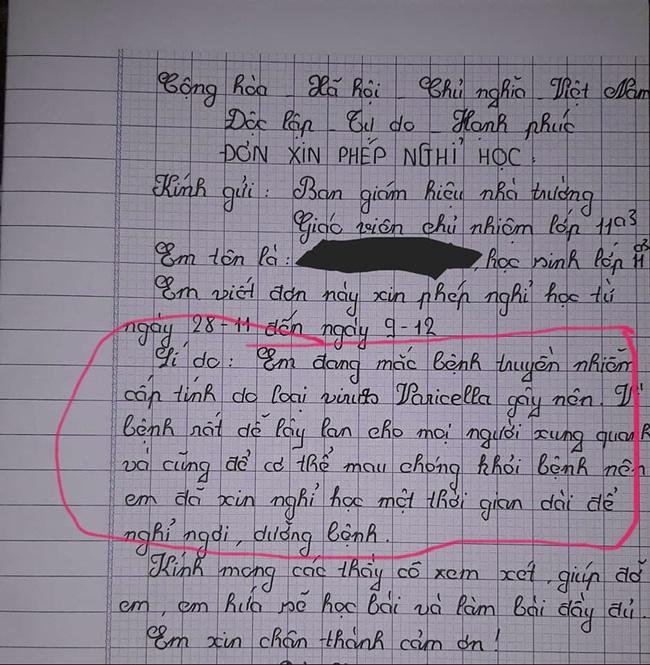 Cộng hòa - Xã hội - Chủ nghĩa - Việt Nam
Độc lập - Tự do - Hạnh phúc
ĐƠN XIN PHÉP NGHỈ HỌC.
Kính gửi: Ban giám hiệu nhà trường
Giáo viên chủ nhiệm lớp 11a3
Em tên là: , học sinh lớp 11a3
Em viết đơn này xin phép nghỉ học từ
ngày 28-11 đến ngày 9-12
Lí do: Em đang mắc bệnh truyền nhiễm
cấp tính do loại viruto Varicella gây nên. Vì
bệnh rất dễ lây lan cho mọi người xung quanh
và cũng để có thể mau chóng khỏi bệnh nên
em đã xin nghỉ học một thời gian dài để
nghỉ ngơi, dưỡng bệnh.
Kính mong các thầy cô xem xét, giúp đỡ
em, em hứa sẽ học bài và làm bài đầy đủ.
Em xin chân thành cảm ơn!